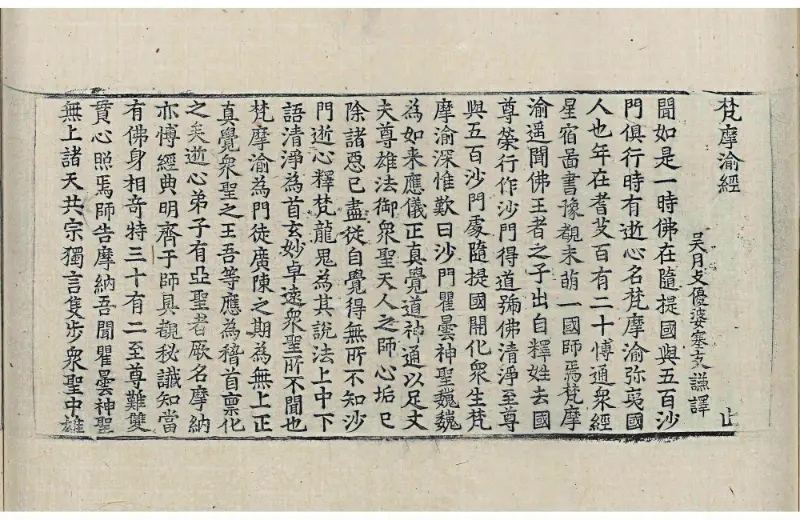 梵摩渝經 止
吴月支優婆塞支謙譯
聞如是一時佛在隨提國與五百沙
門俱行時有逝心名梵摩渝弥夷國
人也年在耆艾百有二十博通衆經
星宿啚書豫覩未萌一國師焉梵摩
渝遥聞佛王者之子出自釋姓去國
尊榮行作沙門得道號佛清淨至尊
與五百沙門處隨提國開化衆生梵
摩渝深惟歎曰沙門瞿曇神聖巍巍
為如来應儀正真覺道神通以足丈
夫尊雄法御衆聖天人之師心垢已
除諸惡已盡從自覺得無所不知沙
門逝心釋梵龍鬼為其說法上中下
語清淨為首玄妙卓遠衆聖所不聞也
梵摩渝為門徒廣陳之期為無上正
真覺衆聖之王吾等應為稽首禀化
之矣逝心弟子有亞聖者厥名摩納
亦博經典明齊于師具覩秘讖知當
有佛身相奇特三十有二至尊難雙
貫心照焉師告摩納吾聞瞿曇神聖
無上諸天共宗獨言隻步衆聖中雄